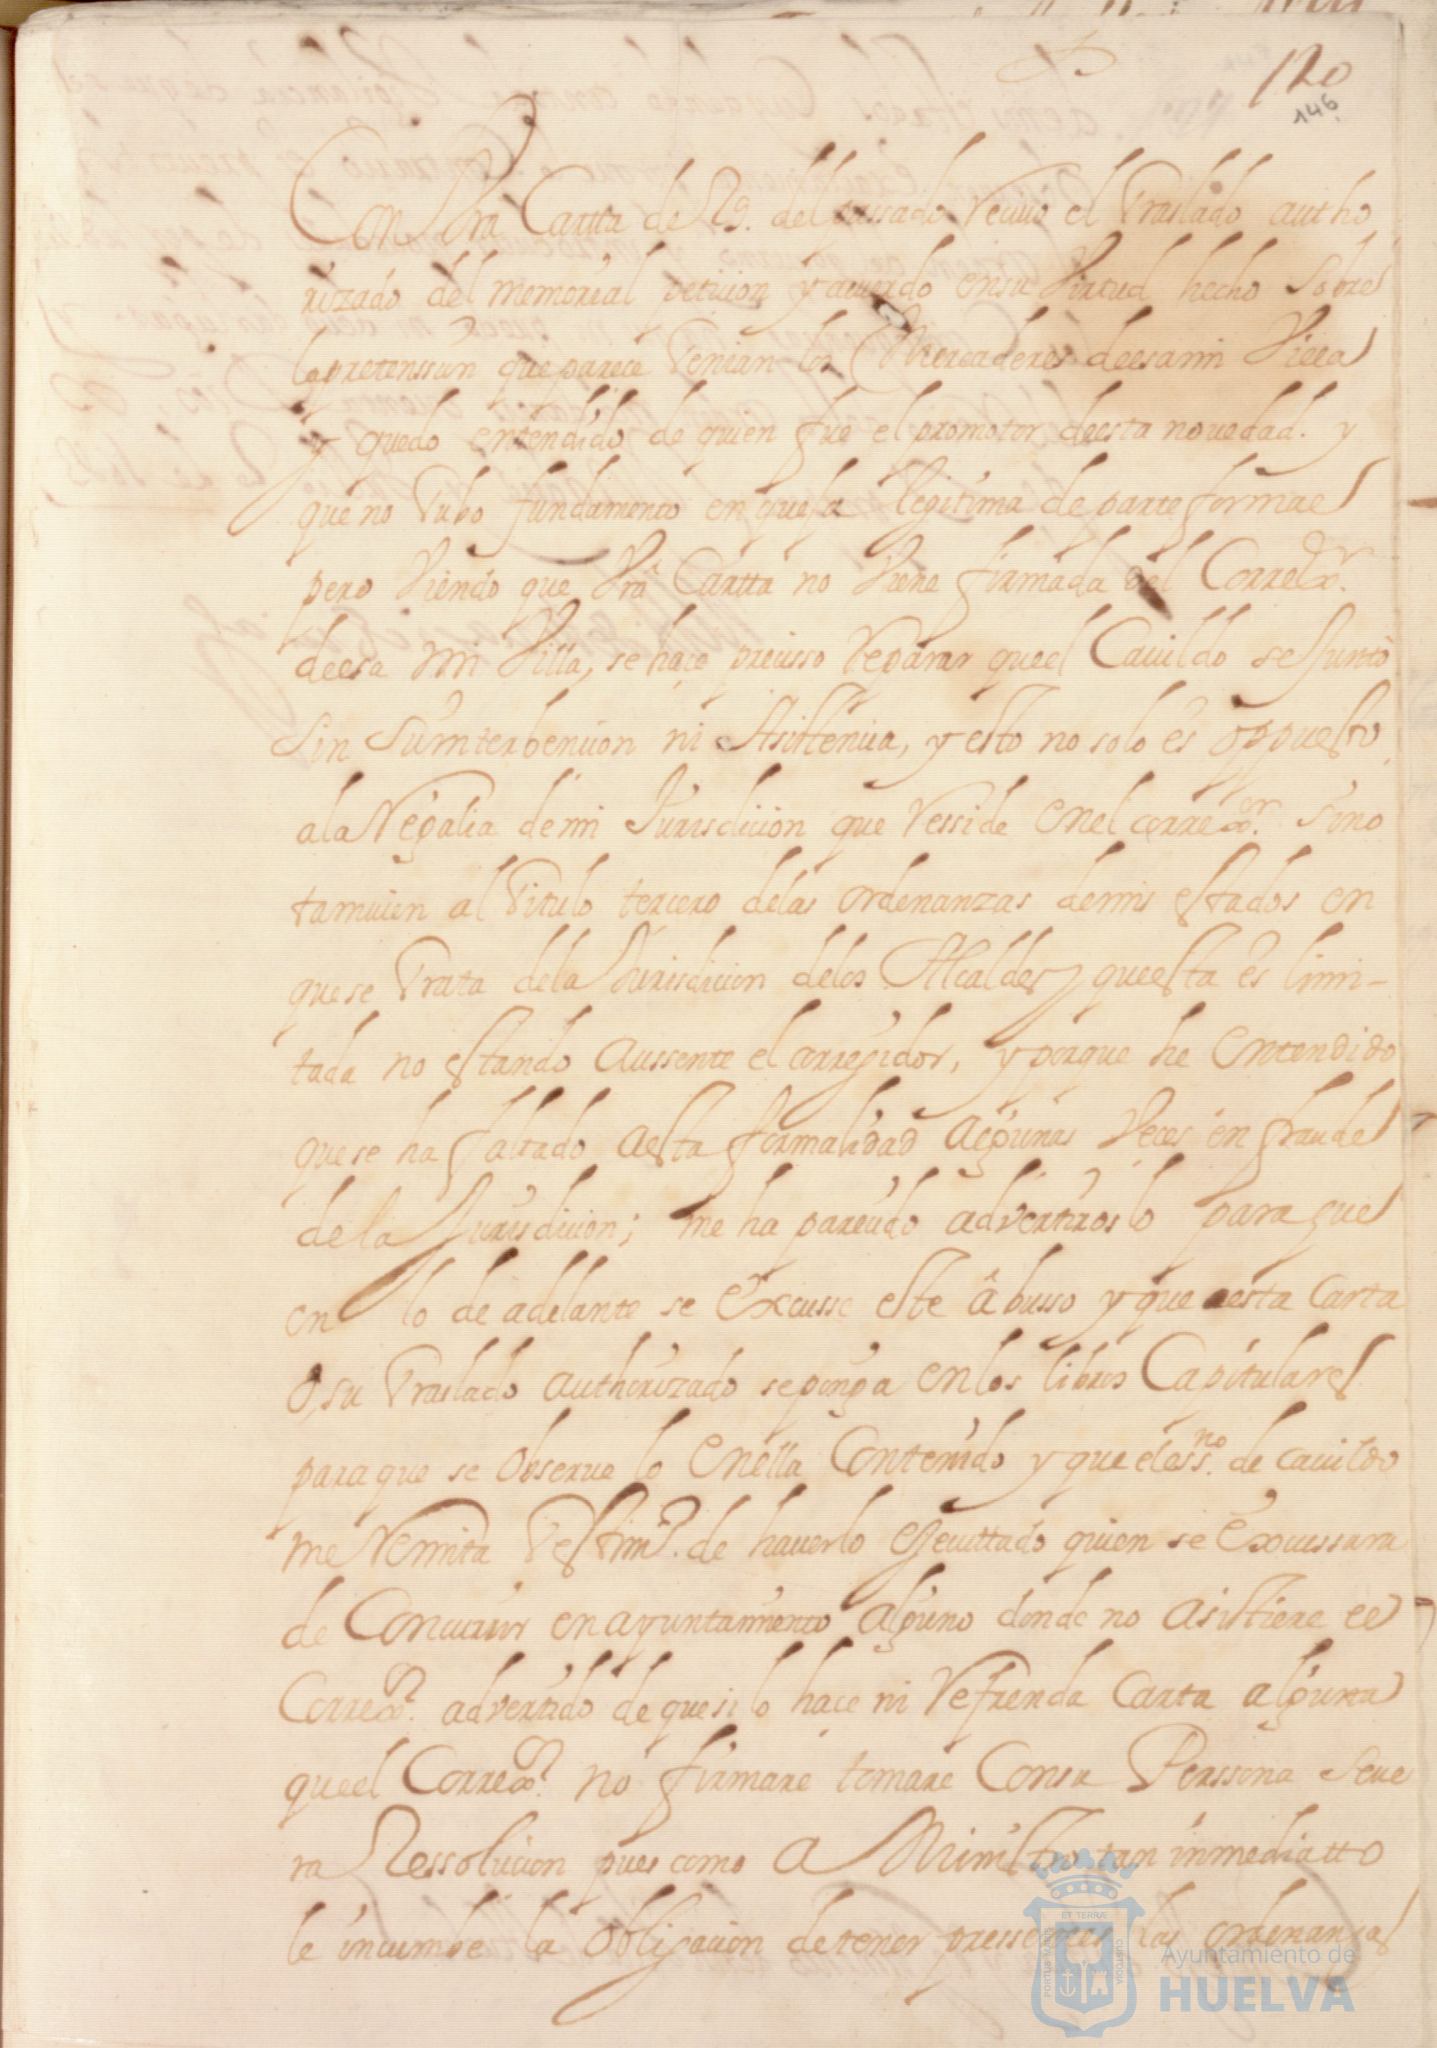 120
146
Con Vra Cartta de 29. del passado Reciui el Traslado autho
rizado del memorial peticion y acuerdo en su Virtud hecho sobre
la pretenssion que parece tenian los Mercaderes de esa mi Villa
y quedo entendido de quien fue el promotor de esta novedad. y
que no tubo fundamento en queja legitima de parte formal
pero viendo que Vrâ Cartta no viene firmada del Corregor.
de esa mi Villa, se haçe preçisso Reparar que el Cauildo se Juntò
sin su interbencion ni Asistencia, y esto no solo es oppuesto
a la Regalia de mi Jurisdicion que Resside en el corregor. sino
tamuien al Titulo tercero de las ordenanzas de mis estados en
que se Trata de la Jurisdicion de los Alcaldes, que esta es limi-
tada no estando aussente el corregidor, y porque he entendido
que se ha faltado a esta formalidad algunas veces en fraude
de la Jurisdicion; me ha pareçido advertiroslo para que
en lo de adelante se excusse este âbusso y que esta Carta
o, su Traslado authorizado se ponga en los libros Capitulares
para que se observe lo en ella Contenido y que el essno. de cauildo
me Remita Testimo. de hauerlo executtado quien se excussara
de Concurrir en ayuntamiento alguno donde no asistiere el
Corregor. advertido de que si lo hace ni Refrenda Carta alguna
que el Corregor. no firmare tomare Con su Perssona seue
ra Ressolucion pues como a Ministro tan inmediatto
le incumbe la obligacion de tener pressentes las ordenanzas
PORTUS MARIS
ET TERRÆ
CUSTODIA
Ayuntamiento de
HUELVA